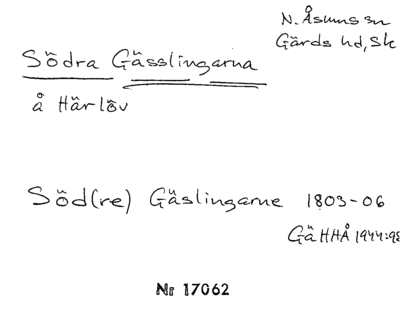 N. Åsums sn
Gärds hd, Sk
Södra Gässlingarna
å Härlöv
Söd(re) Gäslingarne 1803-06
GäHHÅ 1944:98
Nr 17062